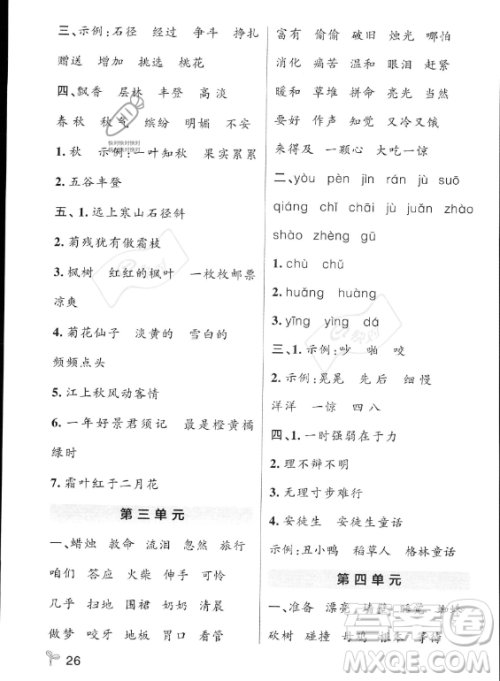 三、示例:石径 经过 争斗 挣扎
赠送 增加 挑选 桃花
四、飘香 层林 丰登 高淡
春秋 秋气 缤纷 明媚 不安
1. 秋 示例:一叶知秋 果实累累
2. 五谷丰登
五、1. 远上寒山石径斜
2. 菊残犹有傲霜枝
3. 枫树 红红的枫叶 一枚枚邮票
凉爽
4. 菊花仙子 淡黄的 雪白的
频频点头
5. 江上秋风动客情
6. 一年好景君须记 最是橙黄橘
绿时
7. 霜叶红于二月花
第三单元
一、蜡烛 救命 流泪 忽然 旅行
咱们 答应 火柴 伸手 可怜
几乎 扫地 围裙 奶奶 清晨
做梦 咬牙 地板 胃口 看管
26
富有 偷偷 破旧 烛光 哪怕
消化 痛苦 温和 眼泪 赶紧
暖和 草堆 拼命 亮光 需要
要好 作声 知觉 又冷又饿
来得及 一颗心 大吃一惊
二、yòu pèn jìn rán jù suō
qiáng chǐ chāi jù juǎn zhàng
shào zhèng gū
1. chù chǔ
2. huǎng huàng
3. yīng yìng dá
三、1. 示例:吵 啪 咬
2. 示例:晃晃 先后 细慢
洋洋 一惊 四八
四、1. 一时强弱在于力
2. 理不辩不明
3. 无理寸步难行
4. 安徒生 安徒生童话
示例:丑小鸭 稻草人 格林童话
第四单元
一、准备 漂亮
砍树 碰撞
答案圈
MXQE.COM